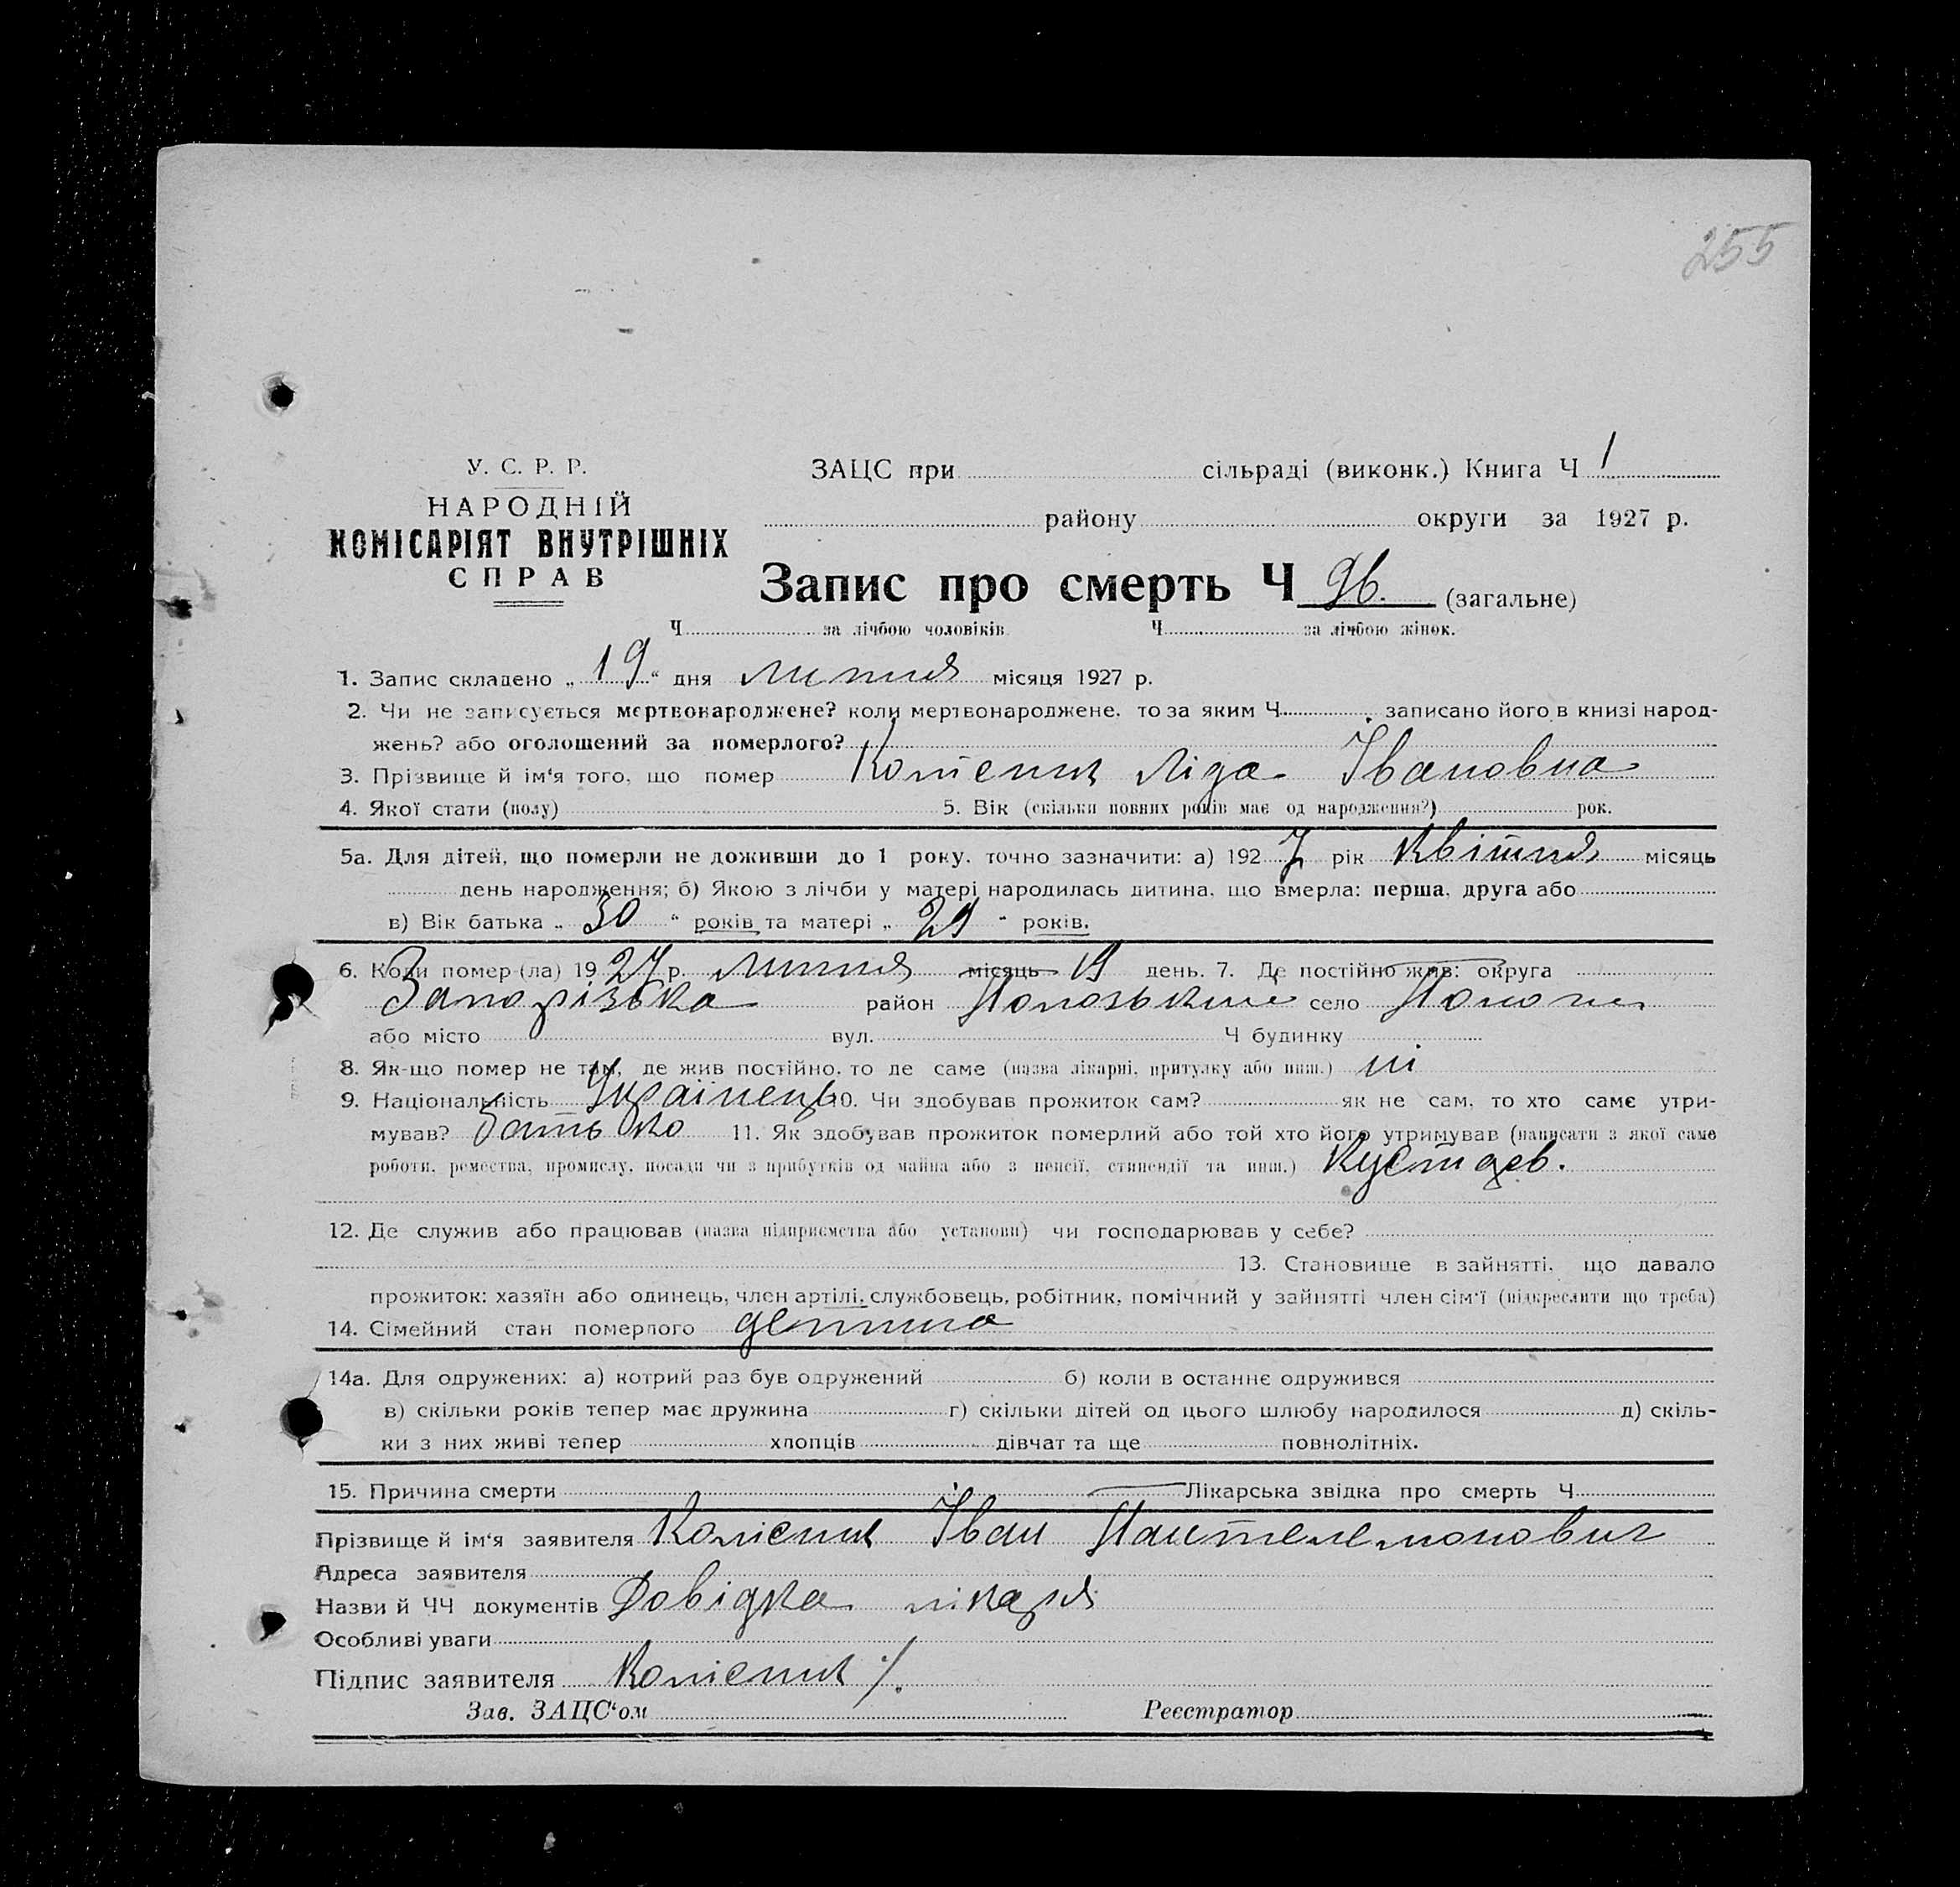 255
У. С. Р. Р.
НАРОДНІЙ
КОМІСАРІЯТ ВНУТРІШНІХ
СПРАВ
ЗАЦС при сільраді (виконк.) Книга Ч 1
району округи за 1927 р.
Запис про смерть Ч 96. (загальне)
Ч за лічбою чоловіків Ч за лічбою жінок.
1. Запис складено „ 19 “ дня липня місяця 1927 р.
2. Чи не записується мертвонароджене? коли мертвонароджене, то за яким Ч , записано його в книзі народ-
жень? або оголошений за померлого?
3. Прізвище й ім‘я того, що помер Колісник Ліда Івановна
4. Якої стати (полу) 5. Вік (скільки повних років має од народження?) рок.
5а. Для дітей, що померли не доживши до 1 року, точно зазначити: а) 1927 рік Квітня місяць
день народження; б) Якою з лічби у матері народилась дитина, що вмерла: перша, друга або
в) Вік батька „ 30 “ років та матері „ 29 “ років.
6. Коли помер-(ла) 1927 р. липня місяць 19 день. 7. Де постійно жив: округа
Запорізька район Пологськ село Пологи
або місто вул. Ч будинку
8. Як-що помер не там, де жив постійно, то де саме (назва лікарні, притулку або инш.) ні
9. Національність Українець 10. Чи здобував прожиток сам? як не сам, то хто саме утри-
мував? батько 11. Як здобував прожиток померлий або той хто його утримував (написати з якої саме
роботи, ремества, промислу, посади чи з прибутків од майна або з пенсії, стипендії та инш.)
12. Де служив або працював (назва підприємства або установи) чи господарював у себе?
13. Становище в зайнятті, що давало
прожиток: хазяїн або одинець, член артілі, службовець, робітник, помічний у зайнятті член сім‘ї (підкреслити що треба)
14. Сімейний стан померлого детина
14а. Для одружених: а) котрий раз був одружений б) коли в останнє одружився
в) скільки років тепер має дружина г) скільки дітей од цього шлюбу народилося д) скіль-
ки з них живі тепер хлопців дівчат та ще повнолітніх.
15. Причина смерти Лікарська звідка про смерть Ч
Прізвище й ім‘я заявителя Колісник Іван Пантелемонович
Адреса заявителя
Назви й ЧЧ документів Довідка лікаря
Особливі уваги
Підпис заявителя Колісник
Зав. ЗАЦС‘ом Реєстратор